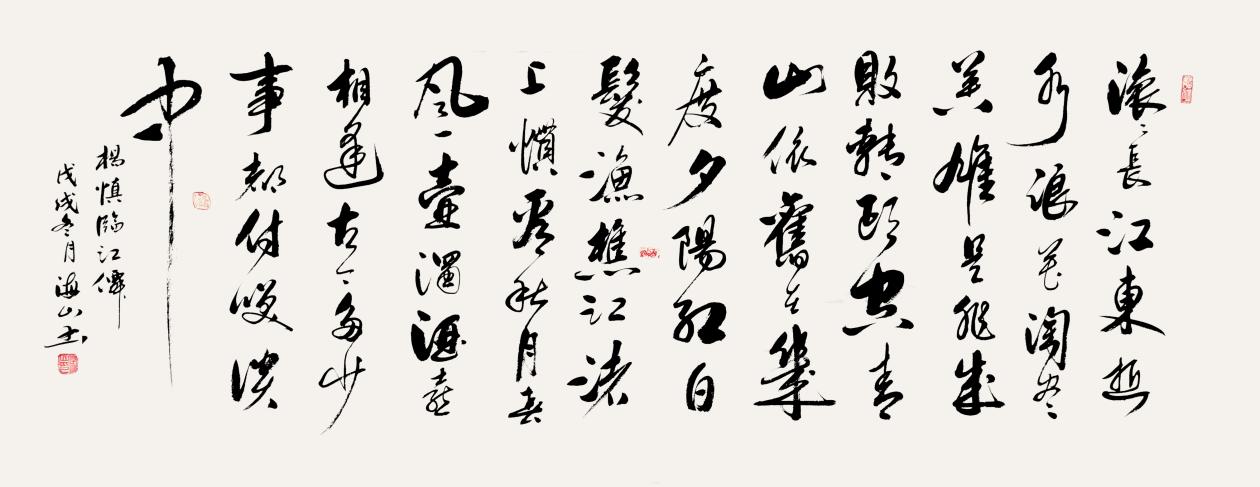 滚〻長江東逝
水浪花淘尽
英雄是非成
敗轉頭空青
山依舊在幾
度夕陽紅白
髮漁樵江渚
上慣看秋月春
風一壺濁酒喜
相逢古今多少
事都付笑談
中
楊慎臨江僊
戊戌冬月海山書